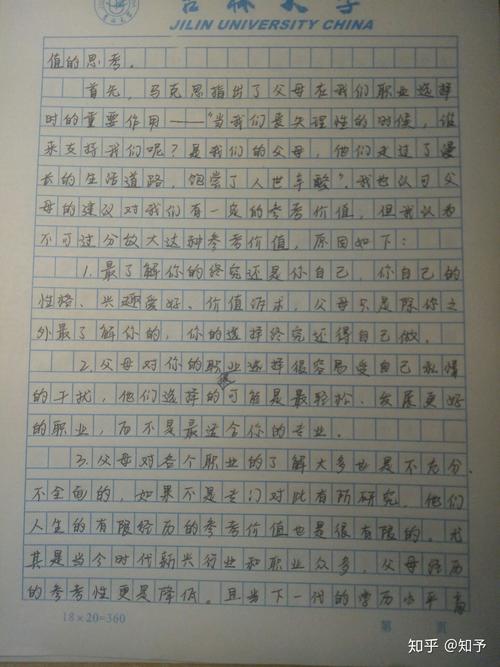 吉林大学
JILIN UNIVERSITY CHINA
值的思考。
首先，马克思指出了父母在我们职业选择
时的重要作用——"当我们丧失理性的时候，谁
来支持我们呢？是我们的父母，他们走过了漫
长的生活道路，饱尝了人世辛酸"。我也认可父
母的建议对我们有一定的参考价值，但我认为
不可过分放大这种参考价值，原因如下：
1.最了解你的终究还是你自己，你自己的
性格、兴趣爱好、价值诉求，父母只是除你之
外最了解你的，你的选择终究还得自己做。
2.父母对你的职业选择很容易受自己私情
的干扰，他们选择的很可能是最轻松、发展更好
的职业，而不是最适合你的专业。
3.父母对各个职业的了解大多也是不充分
不全面的，如果不是专门对此有所研究，他们
人生的有限经历的参考价值也是很有限的。尤
其是当今时代新兴行业和职业众多，父母经历
的参考性更是降低。且当下一代的学历水平高
18×20=360
第 页
知乎 @知予